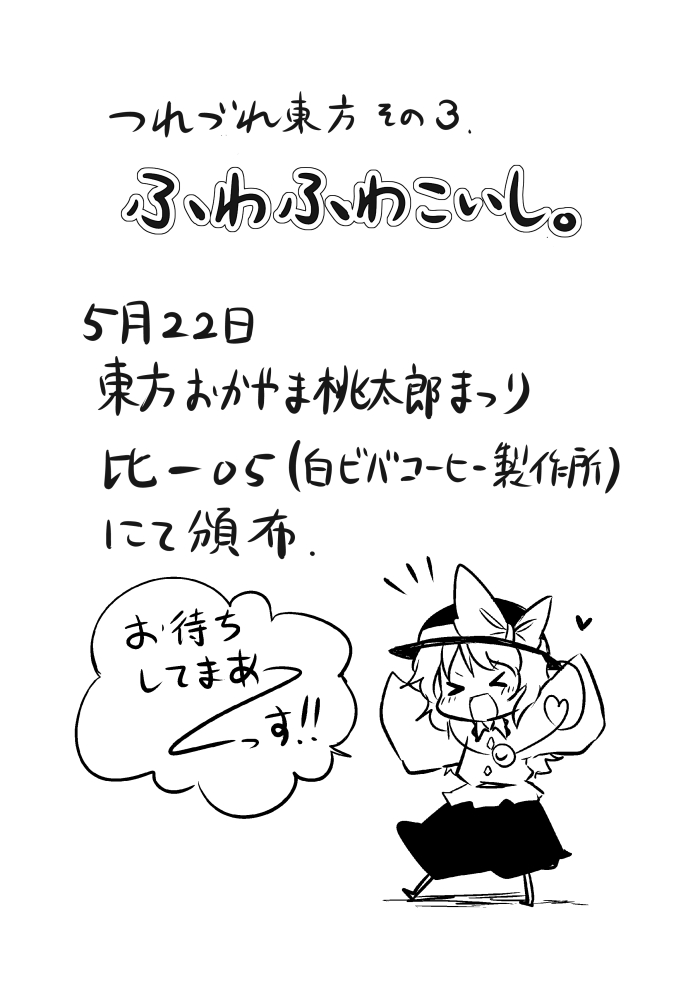 つれづれ東方 その3.
ふわふわこいし。
5月22日
東方おかやま桃太郎まつり
比-05(白ビバコーヒー製作所)
にて頒布.
お待ち
してまあ〜
っす!!